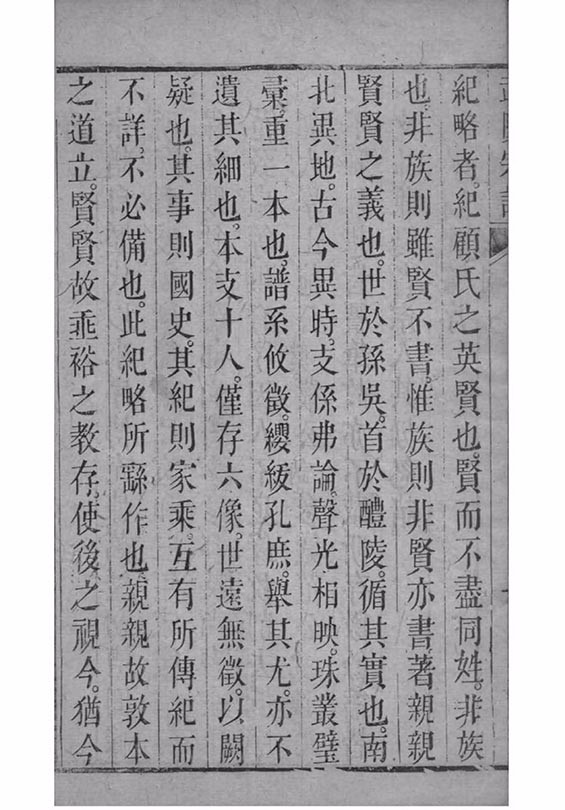 紀略者。紀顧氏之英賢也。賢而不盡同姓。非族
也。非族則雖賢不書。惟族則非賢亦書。著親親
賢賢之義也。世於孫吳。首於醴陵。循其實也。南
北異地。古今異時。支係弗論。聲光相映。珠叢璧
彚。重一本也。譜系攸徵。纓紱孔庶。舉其尤。亦不
遺其細也。本支十人。僅存六像。世遠無徵。以闕
疑也。其事則國史。其紀則家乘。互有所傳。紀而
不詳。不必備也。此紀略所繇作也。親親故敦本
之道立。賢賢故垂裕之教存。使後之視今。猶今